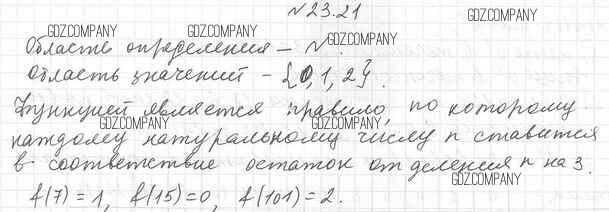 №23.21
GDZ.COMPANY GDZ.COMPANY GDZ.COMPANY
Область определения – N.
GDZ.COMPANY
Область значений – {0, 1, 2}.
Функцией является правило, по которому
GDZ.COMPANY GDZ.COMPANY
каждому натуральному числу n ставится
в соответствие остаток от деления n на 3.
GDZ.COMPANY
f(7) = 1, f(15) = 0, f(101) = 2.